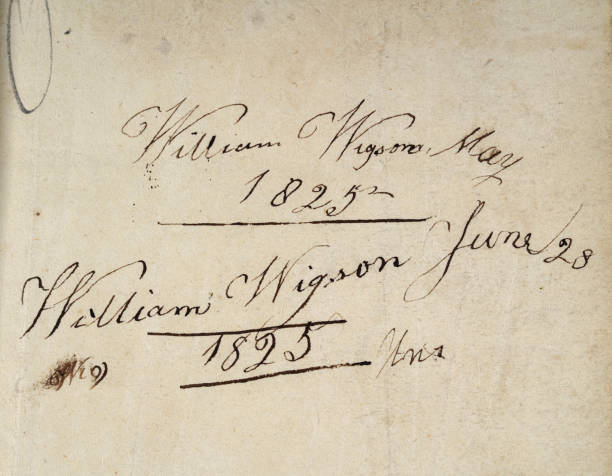 William Wigson May
1825
William Wigson June 28
1825